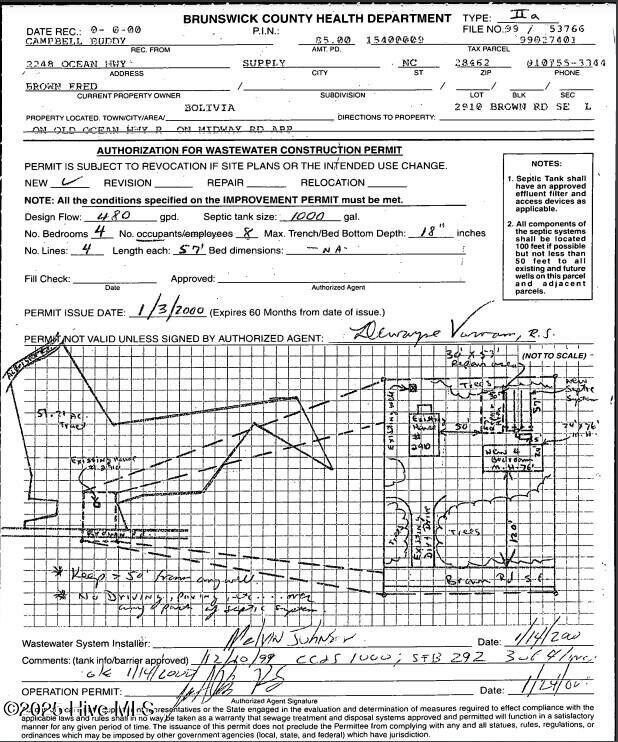 BRUNSWICK COUNTY HEALTH DEPARTMENT TYPE: II a
DATE REC.: 0- 6-00 P.I.N.: FILE NO. 99 / 53766
CAMPBELL BUDDY 85.00 15400009 99027401
REC. FROM AMT. PD. TAX PARCEL
2248 OCEAN HWY SUPPLY NC 28462 910755-3344
ADDRESS CITY ST ZIP PHONE
BROWN FRED / / /
CURRENT PROPERTY OWNER SUBDIVISION LOT BLK SEC
BOLIVIA 2910 BROWN RD SE L
PROPERTY LOCATED, TOWN/CITY/AREA/ DIRECTIONS TO PROPERTY:
ON OLD OCEAN HWY R ON MIDWAY RD APP
AUTHORIZATION FOR WASTEWATER CONSTRUCTION PERMIT
PERMIT IS SUBJECT TO REVOCATION IF SITE PLANS OR THE INTENDED USE CHANGE.
NEW ✓ REVISION REPAIR RELOCATION
NOTE: All the conditions specified on the IMPROVEMENT PERMIT must be met.
Design Flow: 480 gpd. Septic tank size: 1000 gal.
No. Bedrooms 4 No. occupants/employees 8 Max. Trench/Bed Bottom Depth: 18" inches
No. Lines: 4 Length each: 57' Bed dimensions: - NA -
NOTES:
1. Septic Tank shall
have an approved
effluent filter and
access devices as
applicable.
2. All components of
the septic systems
shall be located
100 feet if possible
but not less than
50 feet to all
existing and future
wells on this parcel
and adjacent
parcels.
Fill Check: Approved:
Date Authorized Agent
PERMIT ISSUE DATE: 1/3/2000 (Expires 60 Months from date of issue.)
PERMIT NOT VALID UNLESS SIGNED BY AUTHORIZED AGENT: R.S.
(NOT TO SCALE)
Repair area
Trees
New
Septic
System
57'
Existing Well
Existing
House
# 2910
50'
24' x 76'
M.H.
New 4
Bedroom
M.H. 76'
Existing House
Trees
Existing
Dirt Drive
Trees
120'
Brown Rd
Brown Rd S.E.
* Keep > 50' from any well
* No Driving, paving, etc.... over
any part of septic system
Wastewater System Installer: Melvin Johnson Date: 1/14/2000
Comments: (tank info/barrier approved) 12/20/99 1000; STB 292
ok 1/14/2000
OPERATION PERMIT: Date: 1/24/00
Authorized Agent Signature
representatives or the State engaged in the evaluation and determination of measures required to effect compliance with the
applicable laws and rules shall in no way be taken as a warranty that sewage treatment and disposal systems approved and permitted will function in a satisfactory
manner for any given period of time. The issuance of this permit does not preclude the Permittee from complying with any and all statutes, rules, regulations, or
ordinances which may be imposed by other government agencies (local, state, and federal) which have jurisdiction.
©2025 Hive MLS